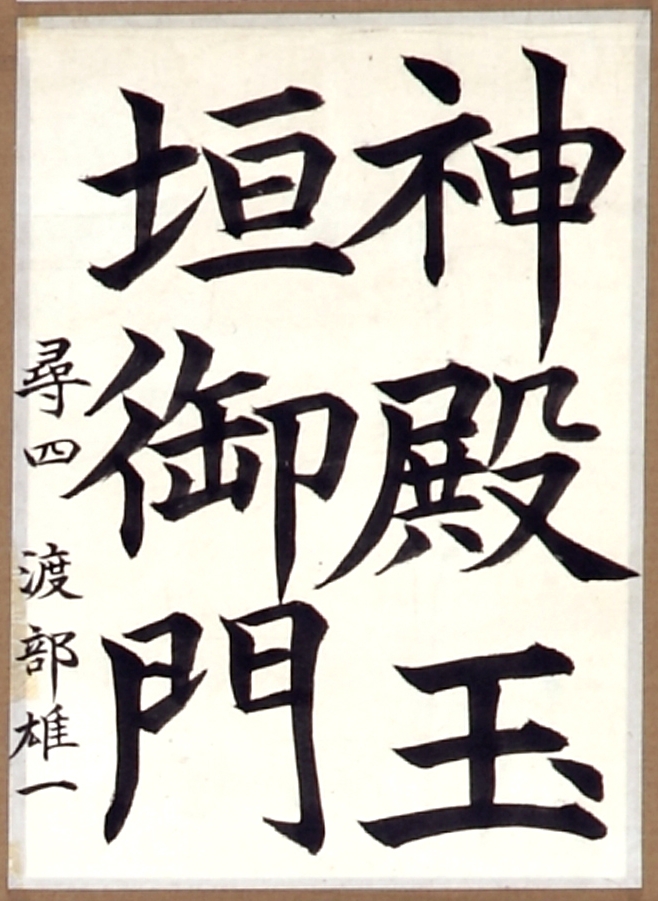 神殿玉
垣御門
尋四 渡部雄一